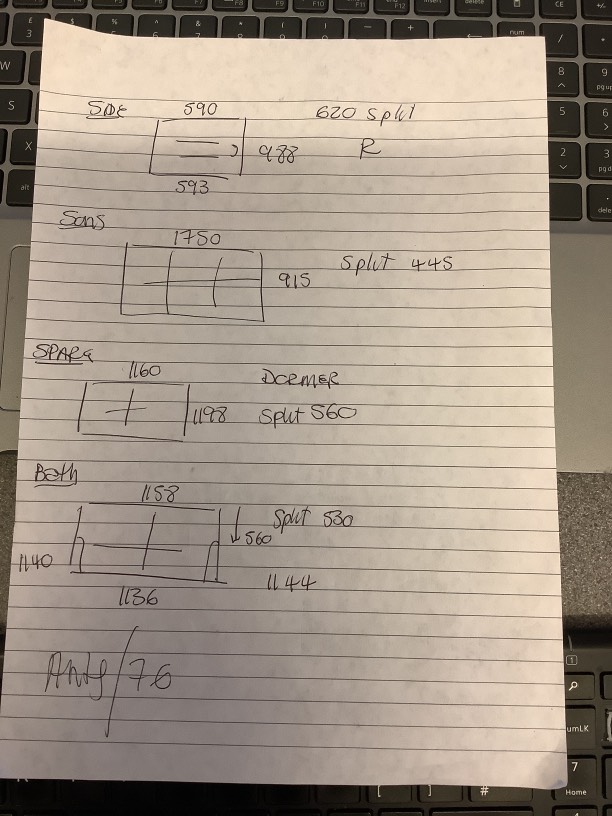 SIDE 590 620 split
988 R
593
Sons
1750
915 Split 445
SPARE
1160 DORMER
1198 Split 560
Bath
1158
560 Split 530
1140 1144
1136
Andy/76